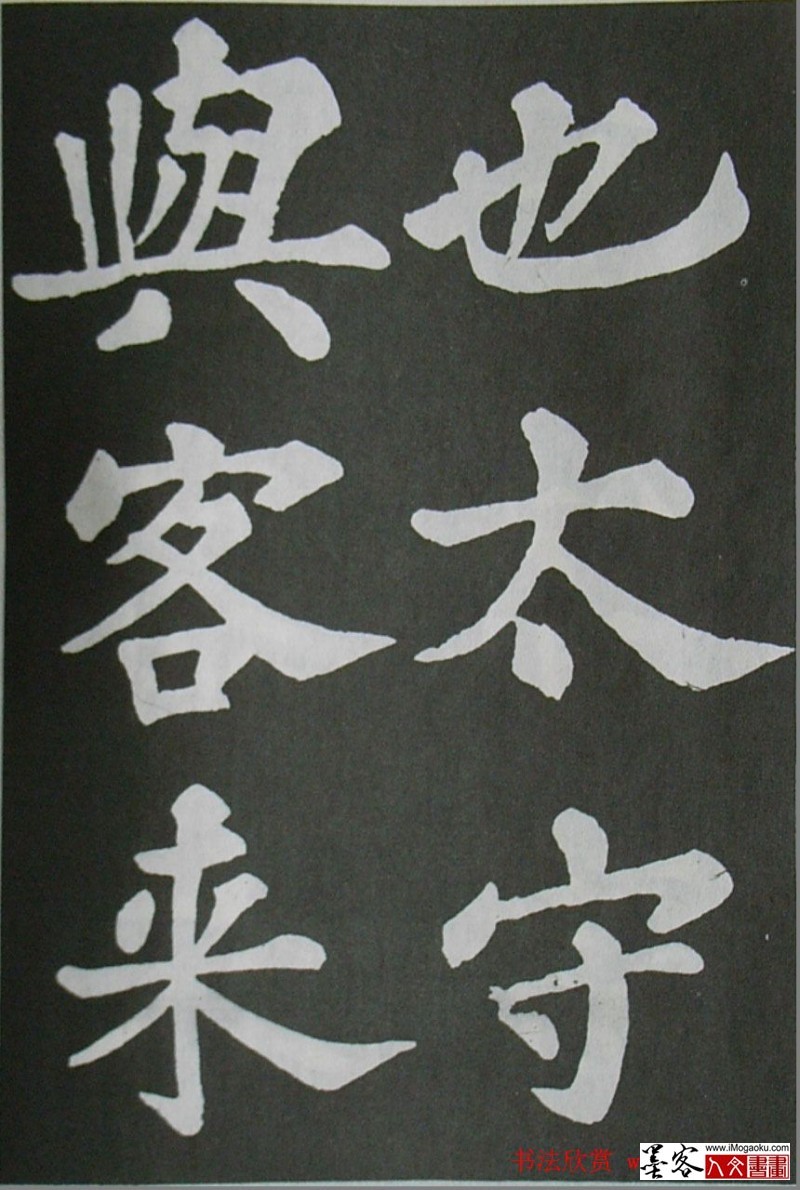 也太守
與客来
书法欣赏 w
www.iMogaoku.com
墨客
人文書畫